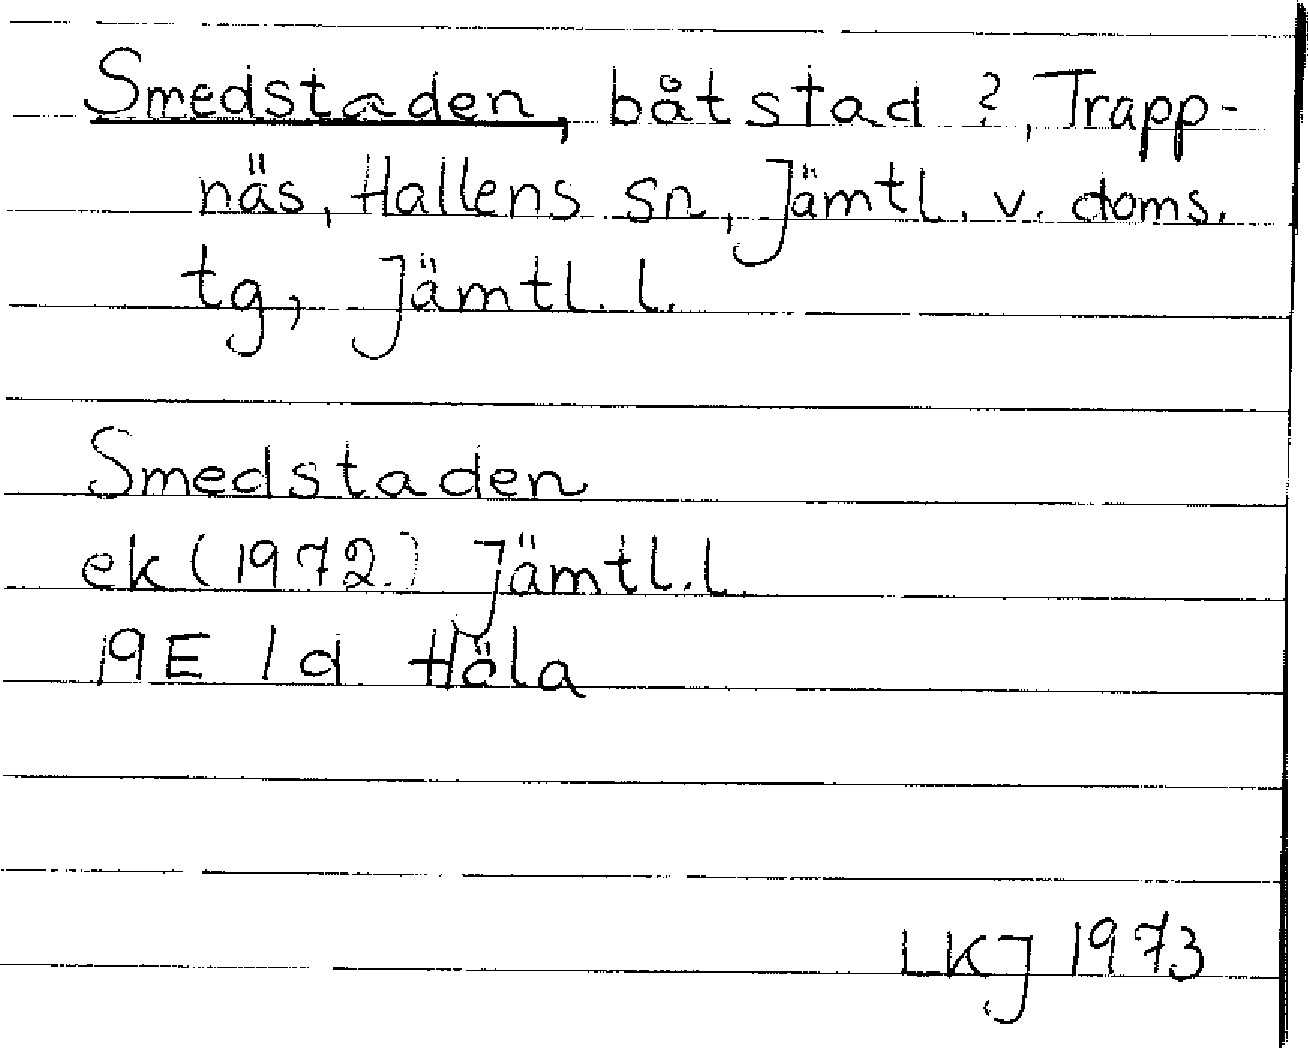 Smedstaden, båtstad ?, Trapp-
näs, Hallens sn, Jämtl. v. doms.
tg, Jämtl. l.
Smedstaden
ek (1972) Jämtl. l.
19E 1d Håla
LKJ 1973